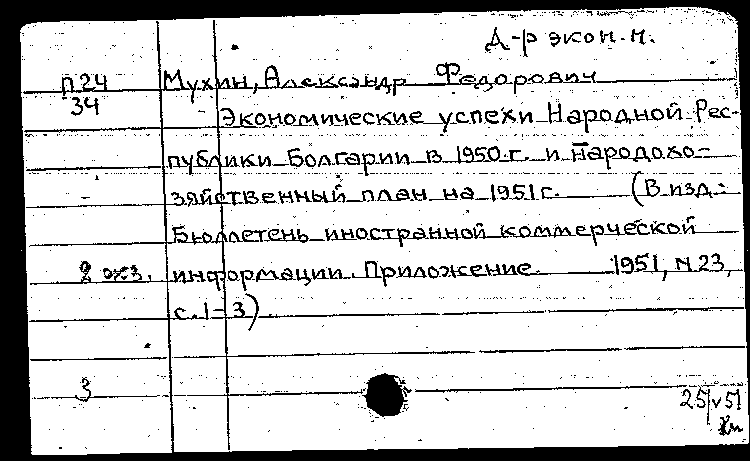 Д-р экон. н.
П 24 Мухин, Александр Федорович
34 Экономические успехи Народной Рес-
публики Болгарии в 1950 г. и народохо-
зяйственный план на 1951 г. (В изд.:
Бюллетень иностранной коммерческой
2 экз. информации. Приложение. 1951, N 23,
с. 1-3).
3
25/V 51